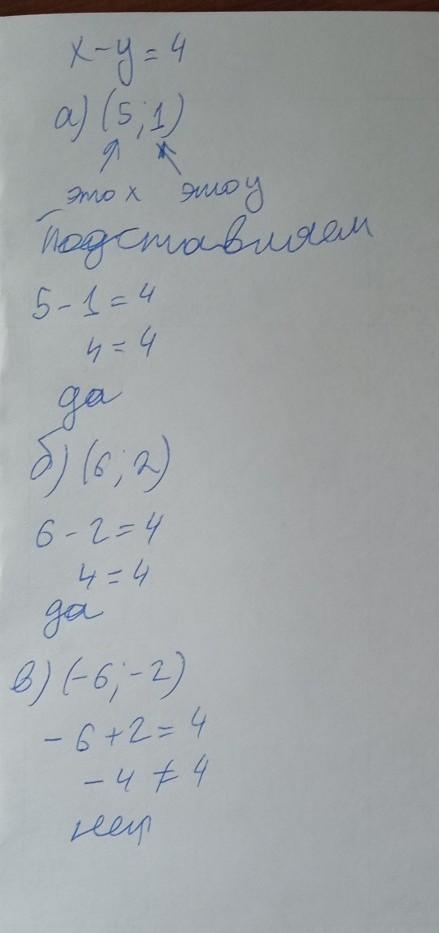 x-y=4
а) (5;1)
это x это y
Подставляем
5-1=4
4=4
да
б) (6;2)
6-2=4
4=4
да
в) (-6;-2)
-6+2=4
-4≠4
нет